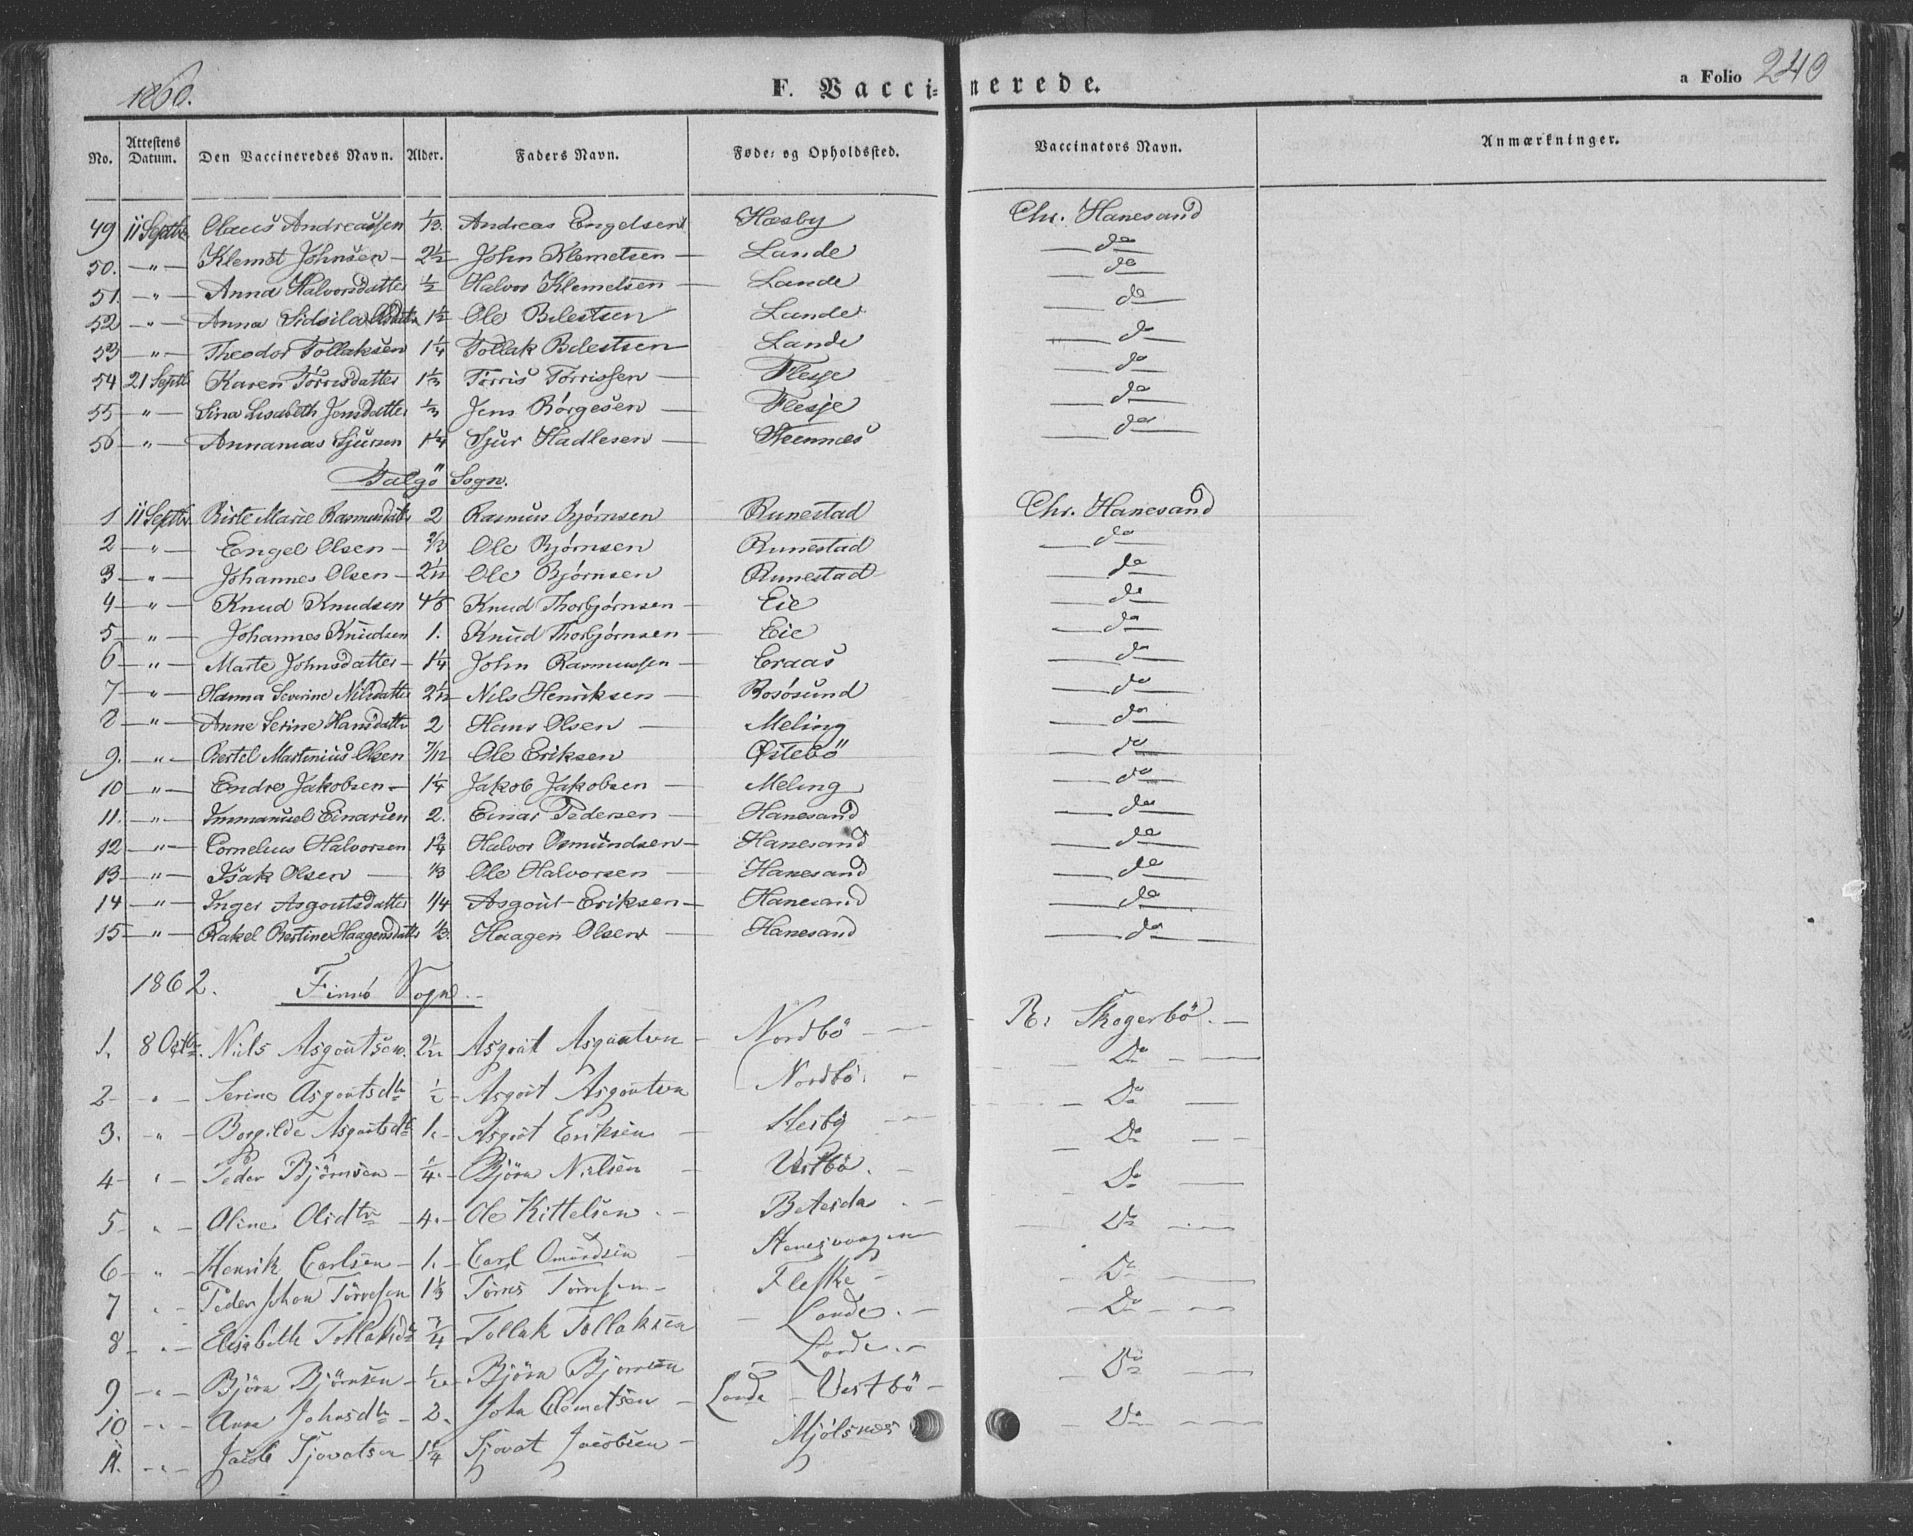 1860.
F. Vaccinerede.
a Folio 240
No. Attestens Datum. Den Vaccineredes Navn. Alder. Faders Navn. Føde- og Opholdssted. Vaccinators Navn. Anmærkninger.
49 11 Septbr Olaus Andreassen 1/3. Andreas Engelsen Hæsby Chr. Hanesand
50. " Klemet Johnsen 2 1/2 John Klemetsen Lande do
51. " Anna Halvorsdatter 1/2 Halvor Klemetsen Lande do
52 " Anna Sidsila Olsdatter 1 1/2 Ole Belestsen Lande do
53 " Theodor Tollaksen 1 1/4 Tollak Belestsen Lande do
54 21 Septbr Karen Tørrisdatter 1 1/3 Tørris Tørrissen Flesje do
55 " Sina Lisabeth Jensdatter 1/3 Jens Børgesen Flesje do
56 " Annanias Sjursen 1 1/4 Sjur Hadlesen Steennæs do
Talgö Sogn.
1 11 Septbr Birte Marie Rasmusdatter 2 Rasmus Bjørnsen Runestad Chr. Hanesand
2 " Engel Olsen 2/3 Ole Bjørnsen Runestad do
3 " Johannes Olsen 2 1/2 Ole Bjørnsen Runestad do
4 " Knud Knudsen 4 1/6 Knud Thorbjørnsen Eie do
5 " Johannes Knudsen 1. Knud Thorbjørnsen Eie do
6 " Marte Johnsdatter 1 1/4 John Rasmussen Eraas do
7 " Hanna Severine Nilsdatter 2 1/2 Nils Henriksen Bosøsund do
8 " Anne Serine Hansdatter 2 Hans Olsen Meling do
9. " Bertel Martenius Olsen 7/12 Ole Eriksen Østebö do
10 " Endre Jakobsen 1 1/4 Jakob Jakobsen Meling do
11. " Immanuel Einarsen 2. Einar Pedersen Hanesand do
12 " Cornelius Halvorsen 1 3/4 Halvor Osmundsen Hanesand do
13 " Isak Olsen 1/3 Ole Halvorsen Hanesand do
14 " Inger Asgoutsdatter 1/4 Asgout Eriksen Hanesand do
15 " Rakel Bertine Haagensdatter 1/3. Haagen Olsen Hanesand do
1862. Finnö Sogn.
1. 8 Octbr. Niels Asgoutsen. 2 1/2 Asgout Asgoutsen Nordbö R: Skogerbö.
2 " Serine Asgoutsdtr 1/2 Asgout Asgoutsen Nordbö. Do
3. " Borgilde Asgoutsdtr 1. Asgout Eriksen Hesby Do
4 " Peder Björnsen 1/4. Björn Nielsen Vestbö. Do
5 " Oline Olsdtr 4. Ole Kittelsen Betesda Do
6 " Henrik Carlsen 1. Carl Omundsen Do
7 " Peder Johan Törresen 1 1/3 Törres Törresen Fleske Do
8 " Elisabeth Tollaksdtr 3/4 Tollak Tollaksen Lande. Do
9 " Björn Björnsen 1/2 Björn Björnsen Lande. Do
10 " Anna Johnsdtr 2. John Clemetsen Lande Vestbö Do
11. " Jacob Sjovatsen 1 1/4 Sjovat Jacobsen Mjölsnes Do